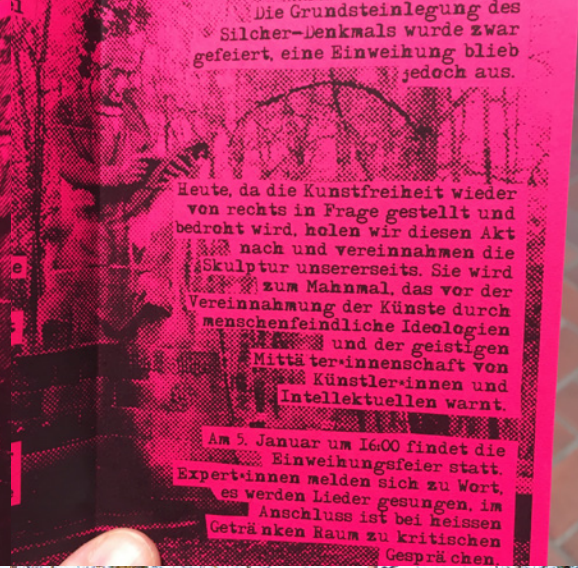 Die Grundsteinlegung des
Silcher-Denkmals wurde zwar
gefeiert, eine Einweihung blieb
jedoch aus.
Heute, da die Kunstfreiheit wieder
von rechts in Frage gestellt und
bedroht wird, holen wir diesen Akt
nach und vereinnahmen die
Skulptur unsererseits. Sie wird
zum Mahnmal, das vor der
Vereinnahmung der Künste durch
menschenfeindliche Ideologien
und der geistigen
Mittäter*innenschaft von
Künstler*innen und
Intellektuellen warnt.
Am 5. Januar um 16:00 findet die
Einweihungsfeier statt.
Expert*innen melden sich zu Wort,
es werden Lieder gesungen, im
Anschluss ist bei heissen
Getränken Raum zu kritischen
Gesprächen.